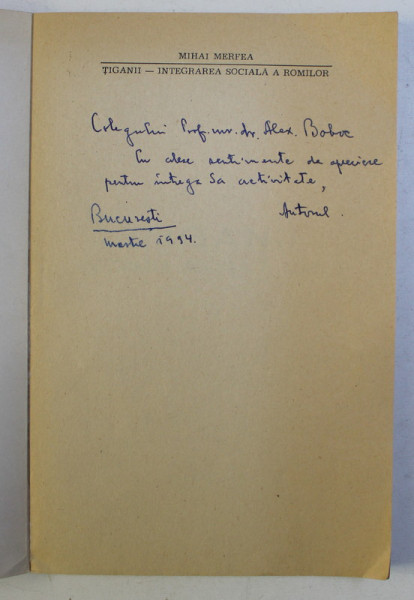 MIHAI MERFEA
ȚIGANII — INTEGRAREA SOCIALĂ A ROMILOR
Colegului Prof. unv. dr. Alex. Boboc
Cu alese sentimente de apreciere
pentru întrega sa activitate,
București Autorul.
martie 1994.